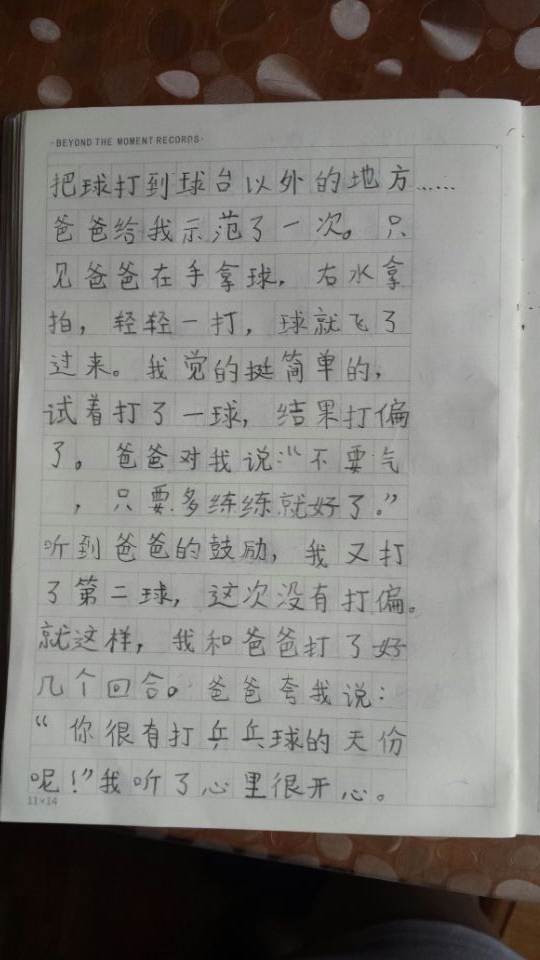 ·BEYOND THE MOMENT RECORDS·
把球打到球台以外的地方……
爸爸给我示范了一次。只
见爸爸在手拿球，右水拿
拍，轻轻一打，球就飞了
过来。我觉的挺简单的，
试着打了一球，结果打偏
了。爸爸对我说：“不要气
，只要多练练就好了。”
听到爸爸的鼓励，我又打
了第二球，这次没有打偏。
就这样，我和爸爸打了好
几个回合。爸爸夸我说：
“你很有打乒乓球的天份
呢！”我听了心里很开心。
11×14